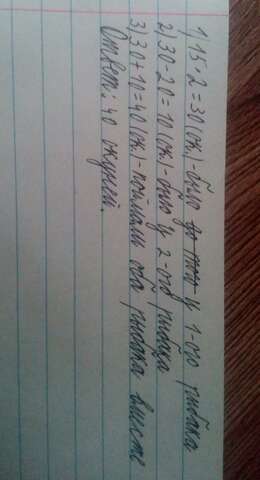 1) 15·2=30(ок.)-было у 1-ого рыбака
2) 30-20=10(ок.)-было у 2-ого рыбака
3) 30+10=40(ок.)-поймали оба рыбака вместе
Ответ: 40 окуней.